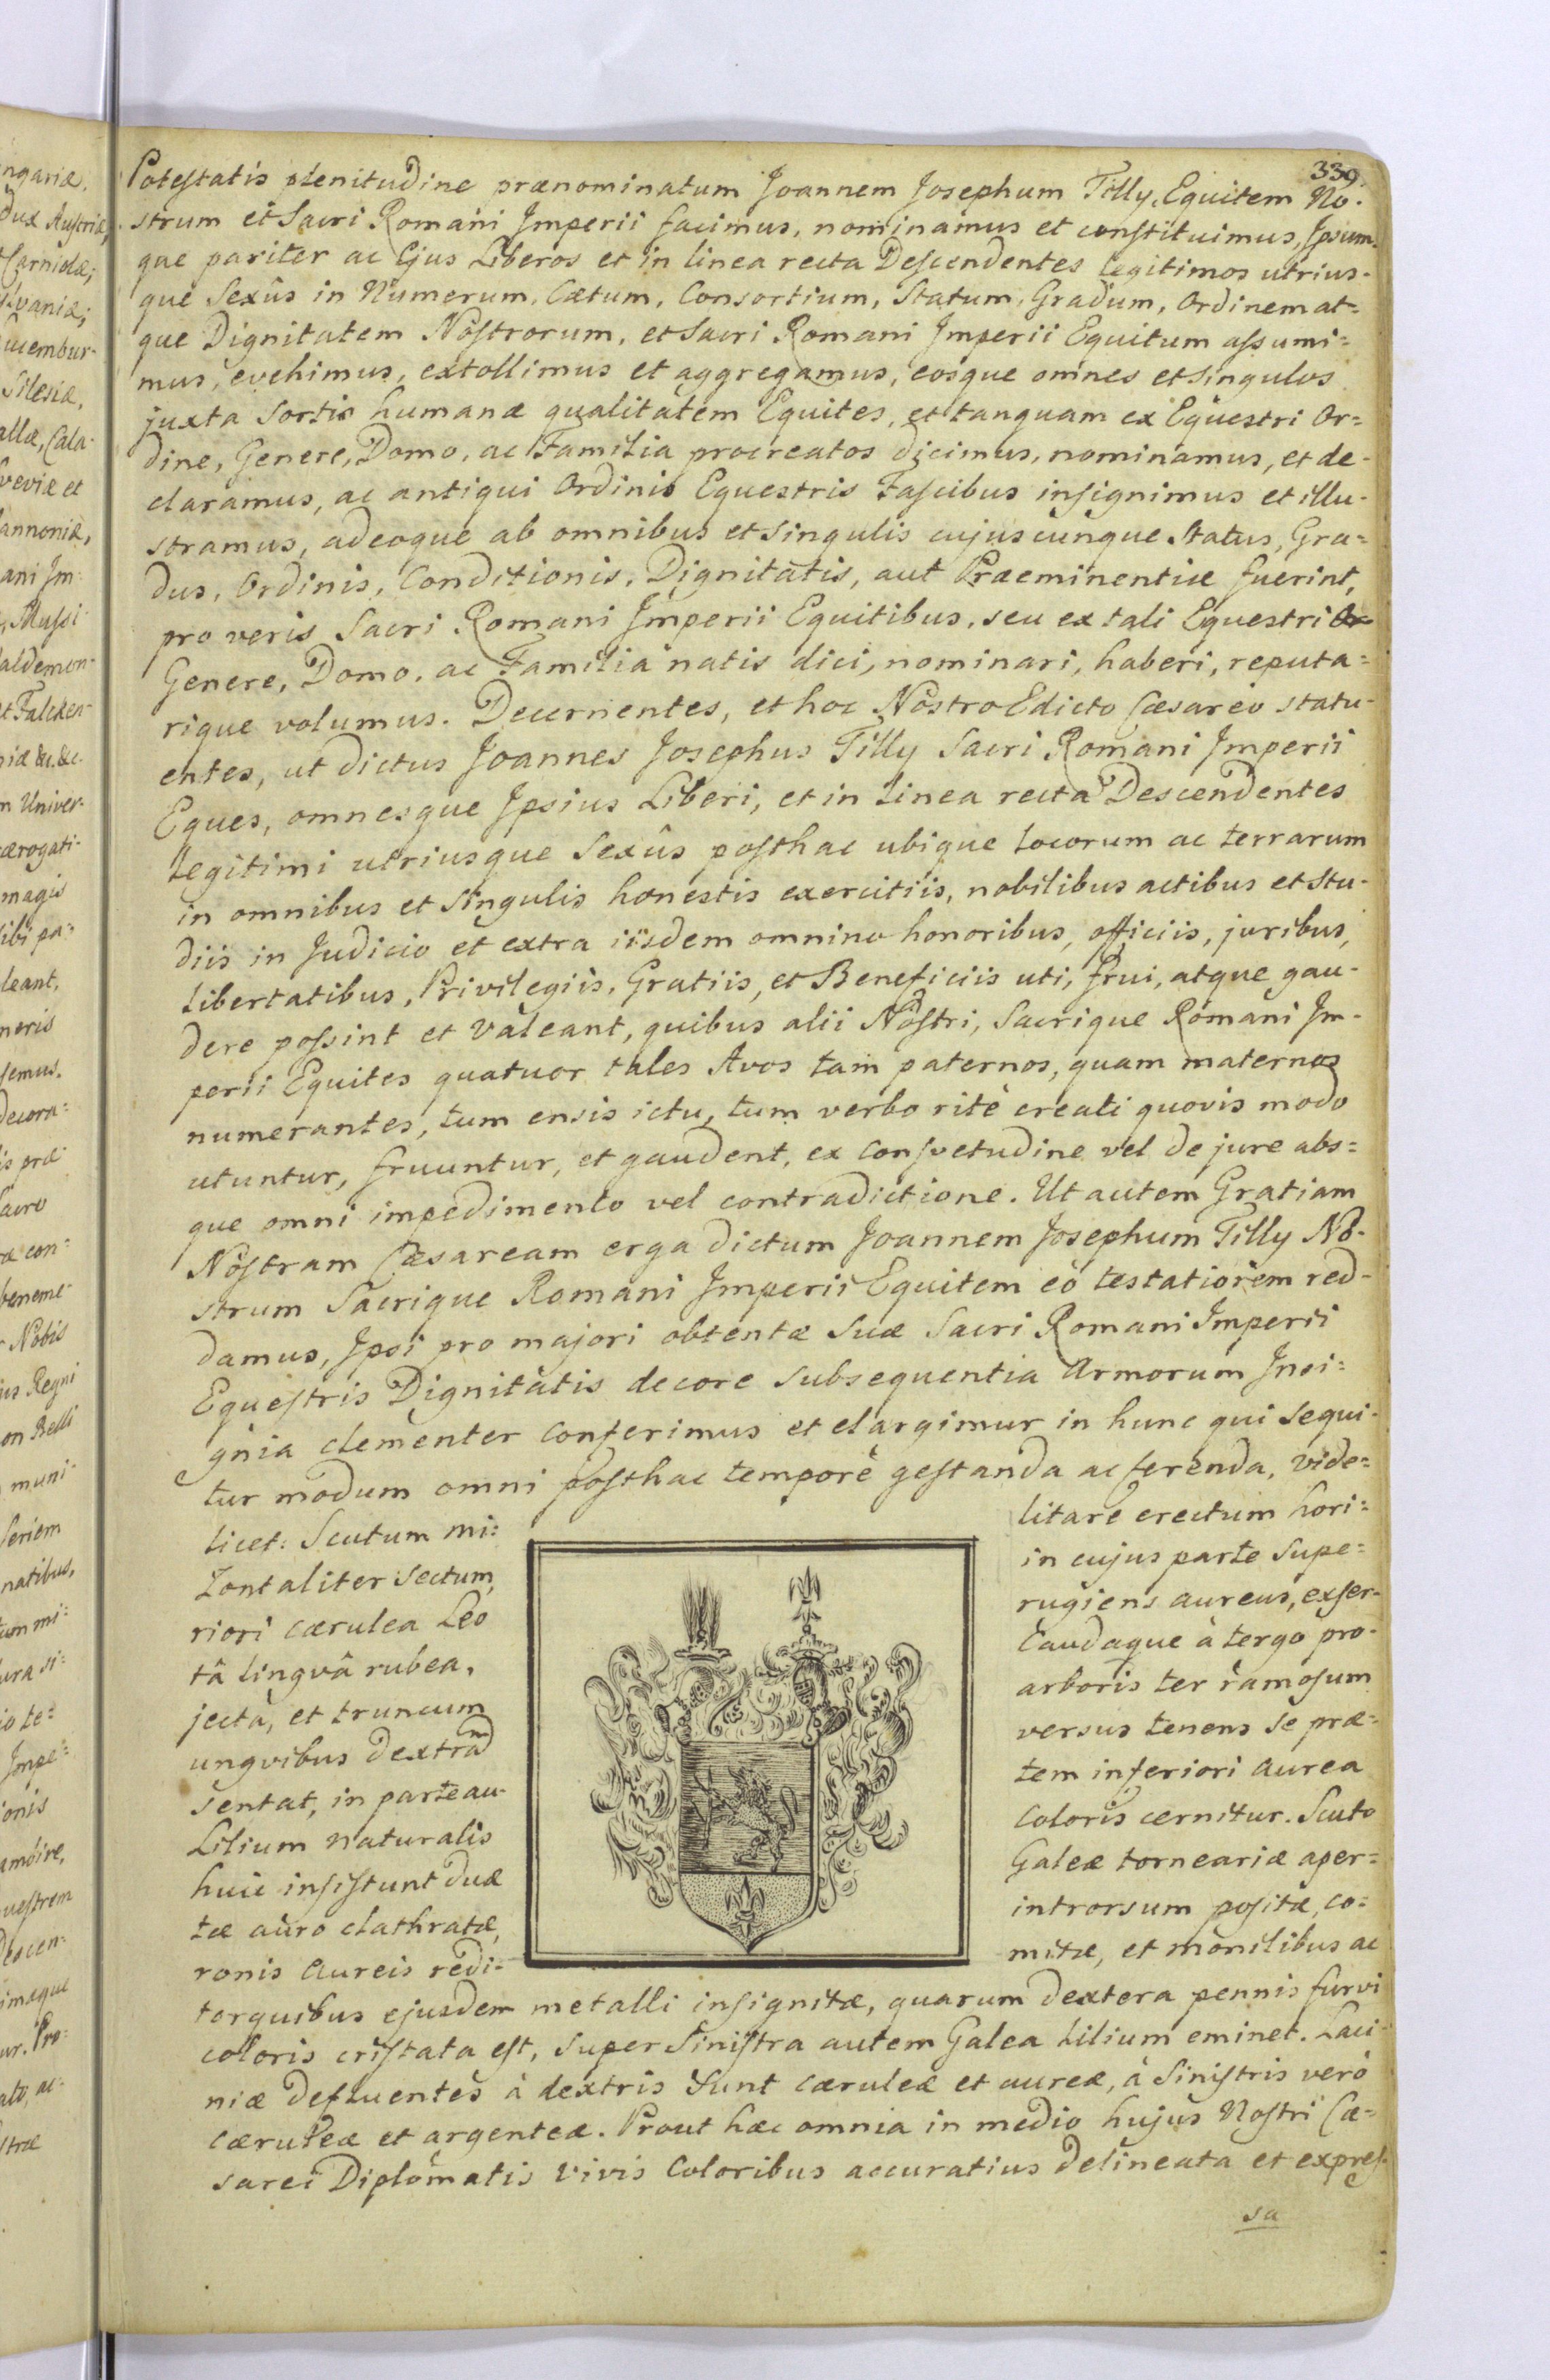 339.
Potestatis plenitudine prænominatum Joannem Josephum Tilly, Equitem No-
strum et Sacri Romani Imperii facimus, nominamus et constituimus, Ipsum-
que pariter ac Ejus Liberos et in linea recta Descendentes legitimos utrius-
que Sexûs in Numerum, Cætum, Consortium, Statum, Gradum, Ordinem at-
que Dignitatem Nostrorum, et Sacri Romani Imperii Equitum assumi=
mus, evehimus, extollimus et aggregamus, eosque omnes et singulos
juxta Sortis humanæ qualitatem Equites, et tanquam ex Equestri Or=
dine, Genere, Domo, ac Familia procreatos dicimus, nominamus, et de-
claramus, ac antiqui Ordinis Equestris Fascibus insignimus et illu-
stramus, adeoque ab omnibus et singulis cujuscunque Status, Gra=
dus, Ordinis, Conditionis, Dignitatis, aut Præeminentiæ fuerint,
pro veris Sacri Romani Imperii Equitibus, seu ex tali Equestri
Genere, Domo, ac Familia natis dici, nominari, haberi, reputa=
rique volumus. Decernentes, et hoc Nostro Edicto Cæsareo statu-
entes, ut dictus Joannes Josephus Tilly Sacri Romani Imperii
Eques, omnesque Ipsius Liberi, et in Linea recta Descendentes
Legitimi utriusque Sexûs posthac ubique locorum ac terrarum
in omnibus et singulis honestis exercitiis, nobilibus actibus et Stu-
diis in Judicio et extra iisdem omnino honoribus, officiis, juribus,
Libertatibus, Privilegiis, Gratiis, et Beneficiis uti, frui, atque gau-
dere possint et valeant, quibus alii Nostri, Sacrique Romani Im-
perii Equites quatuor tales Avos tam paternos, quam maternos
numerantes, tum ensis ictu, tum verbo ritè creati quovis modo
utuntur, fruuntur, et gaudent, ex consvetudine vel de jure abs=
que omni impedimento vel contradictione. Ut autem Gratiam
Nostram Cæsaream erga dictum Joannem Josephum Tilly No-
strum Sacrique Romani Imperii Equitem eò testatiorem red-
damus, Ipsi pro majori obtentæ suæ Sacri Romani Imperii
Equestris Dignitatis decore subsequentia Armorum Insi=
gnia clementer conferimus et elargimur in hunc qui sequi-
tur modum omni posthac tempore gestanda ac ferenda, vide=
licet: Scutum mi= litare erectum hori=
zontaliter sectum, in cujus parte supe=
riori cærulea Leo rugiens aureus, exser-
tâ lingvâ rubea, Caudaque à tergo pro-
jectâ, et truncum arboris ter ramosum
ungvibus dextram versus tenens se præ=
sentat, in parte au- tem inferiori aurea
Lilium naturalis Coloris cernitur. Scuto
huic insistunt duæ Galeæ torneariæ aper=
tæ auro clathratæ, introrsum positæ, co=
ronis aureis redi- mitæ, et monilibus ac
torquibus ejusdem metalli insignitæ, quarum dextera pennis furvi
coloris cristata est, super Sinistra autem Galea Lilium eminet. Laci-
niæ defluentes à dextris sunt cæruleæ et aureæ, à Sinistris verò
cæruleæ et argenteæ. Prout hæc omnia in medio hujus Nostri Cæ=
sarei Diplomatis vivis Coloribus accuratius delineata et expres-
sa